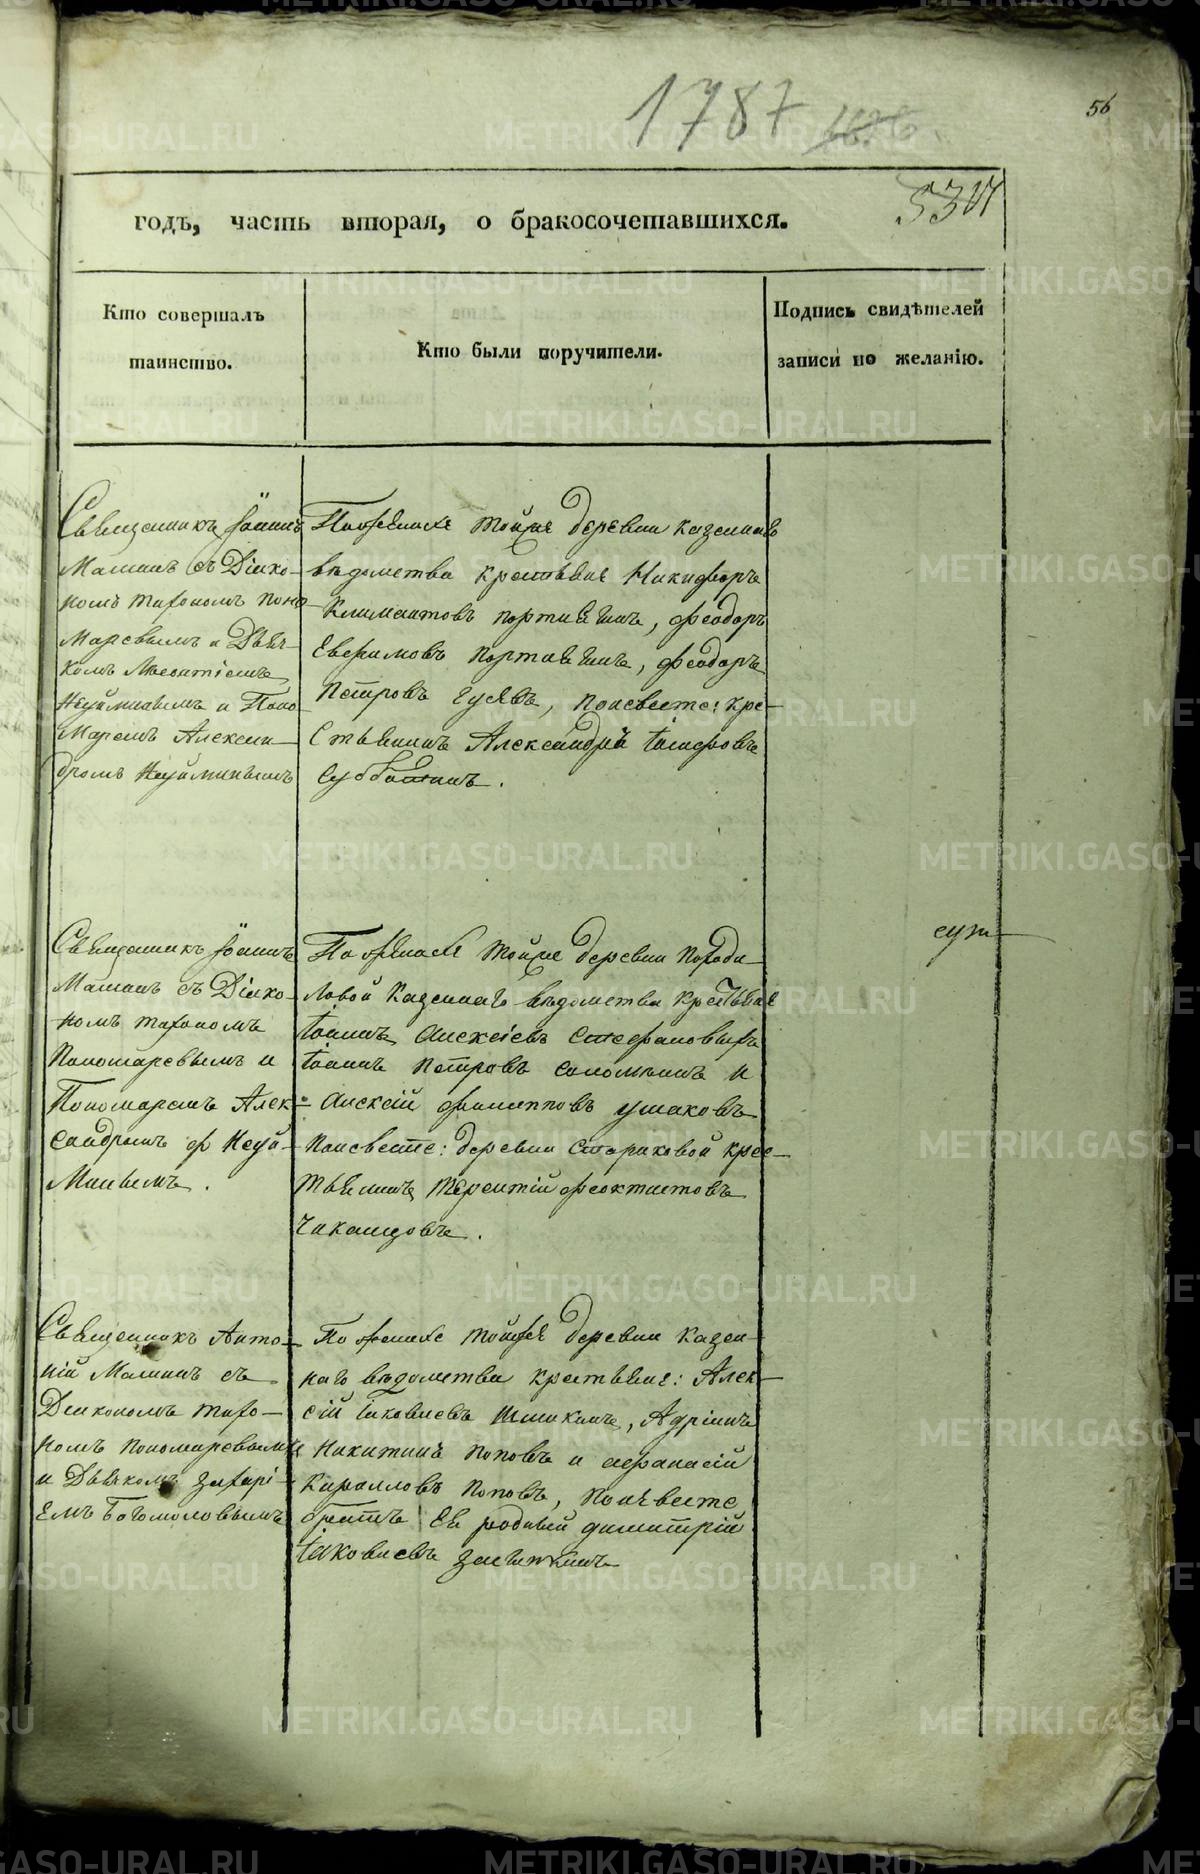 1787
56
годъ, часть вторая, о бракосочетавшихся.
Кто совершалъ
таинство.
Кто были поручители.
Подпись свидѣтелей
записи по желанію.
Священникъ Іоаннъ
Маминъ съ Діако-
номъ Тихономъ Поно-
маревымъ и Дьяч-
комъ
Неуйминымъ и Поно-
маремъ Алексан-
дромъ Неуйминымъ
По женихе тойже деревни казеннаго
ведомства крестьяне Никифоръ
Климантовъ Портнягинъ, Феодоръ
Ефримовъ Портнягинъ, Феодоръ
Петровъ Гусевъ, Поневесте: Кре-
стьянинъ Александръ
Субботинъ.
Священникъ Іоаннъ
Маминъ съ Діако-
номъ Тихономъ
Пономаревымъ и
Пономаремъ Алек-
сандромъ Неуй-
минымъ.
По женихе тойже деревни
казеннаго ведомства крестьяне
Іоаннъ Алексіевъ Стефановыхъ
Іоаннъ Петровъ Соломеинъ и
Алексій Филипповъ Ушаковъ
Поневесте: деревни Стариковой крес-
тьянинъ Терентій Феоктистовъ
Священникъ Анто-
ній Маминъ съ
Діакономъ Тихо-
номъ Пономаревымъ
и Дьячкомъ Захарі-
емъ Богомоловымъ
По женихе тойже деревни казен-
наго ведомства крестьяне: Алек-
сій Іаковлевъ Шишкинъ, Адріанъ
Никитинъ Поповъ и Афанасій
Кирилловъ Поповъ, Поневесте
братъ Ея родный Димитрій
Іаковлевъ
METRIKI.GASO-URAL.RU